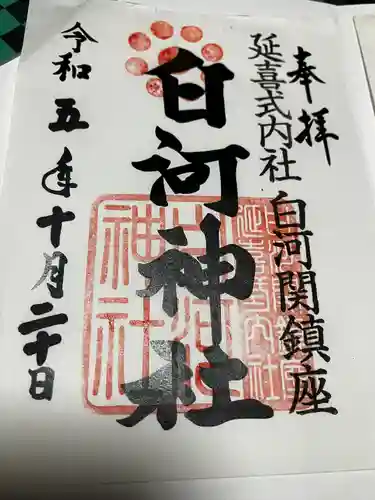 奉拝
延喜式内社 白河関鎮座
白河神社
令和五年十月二十日